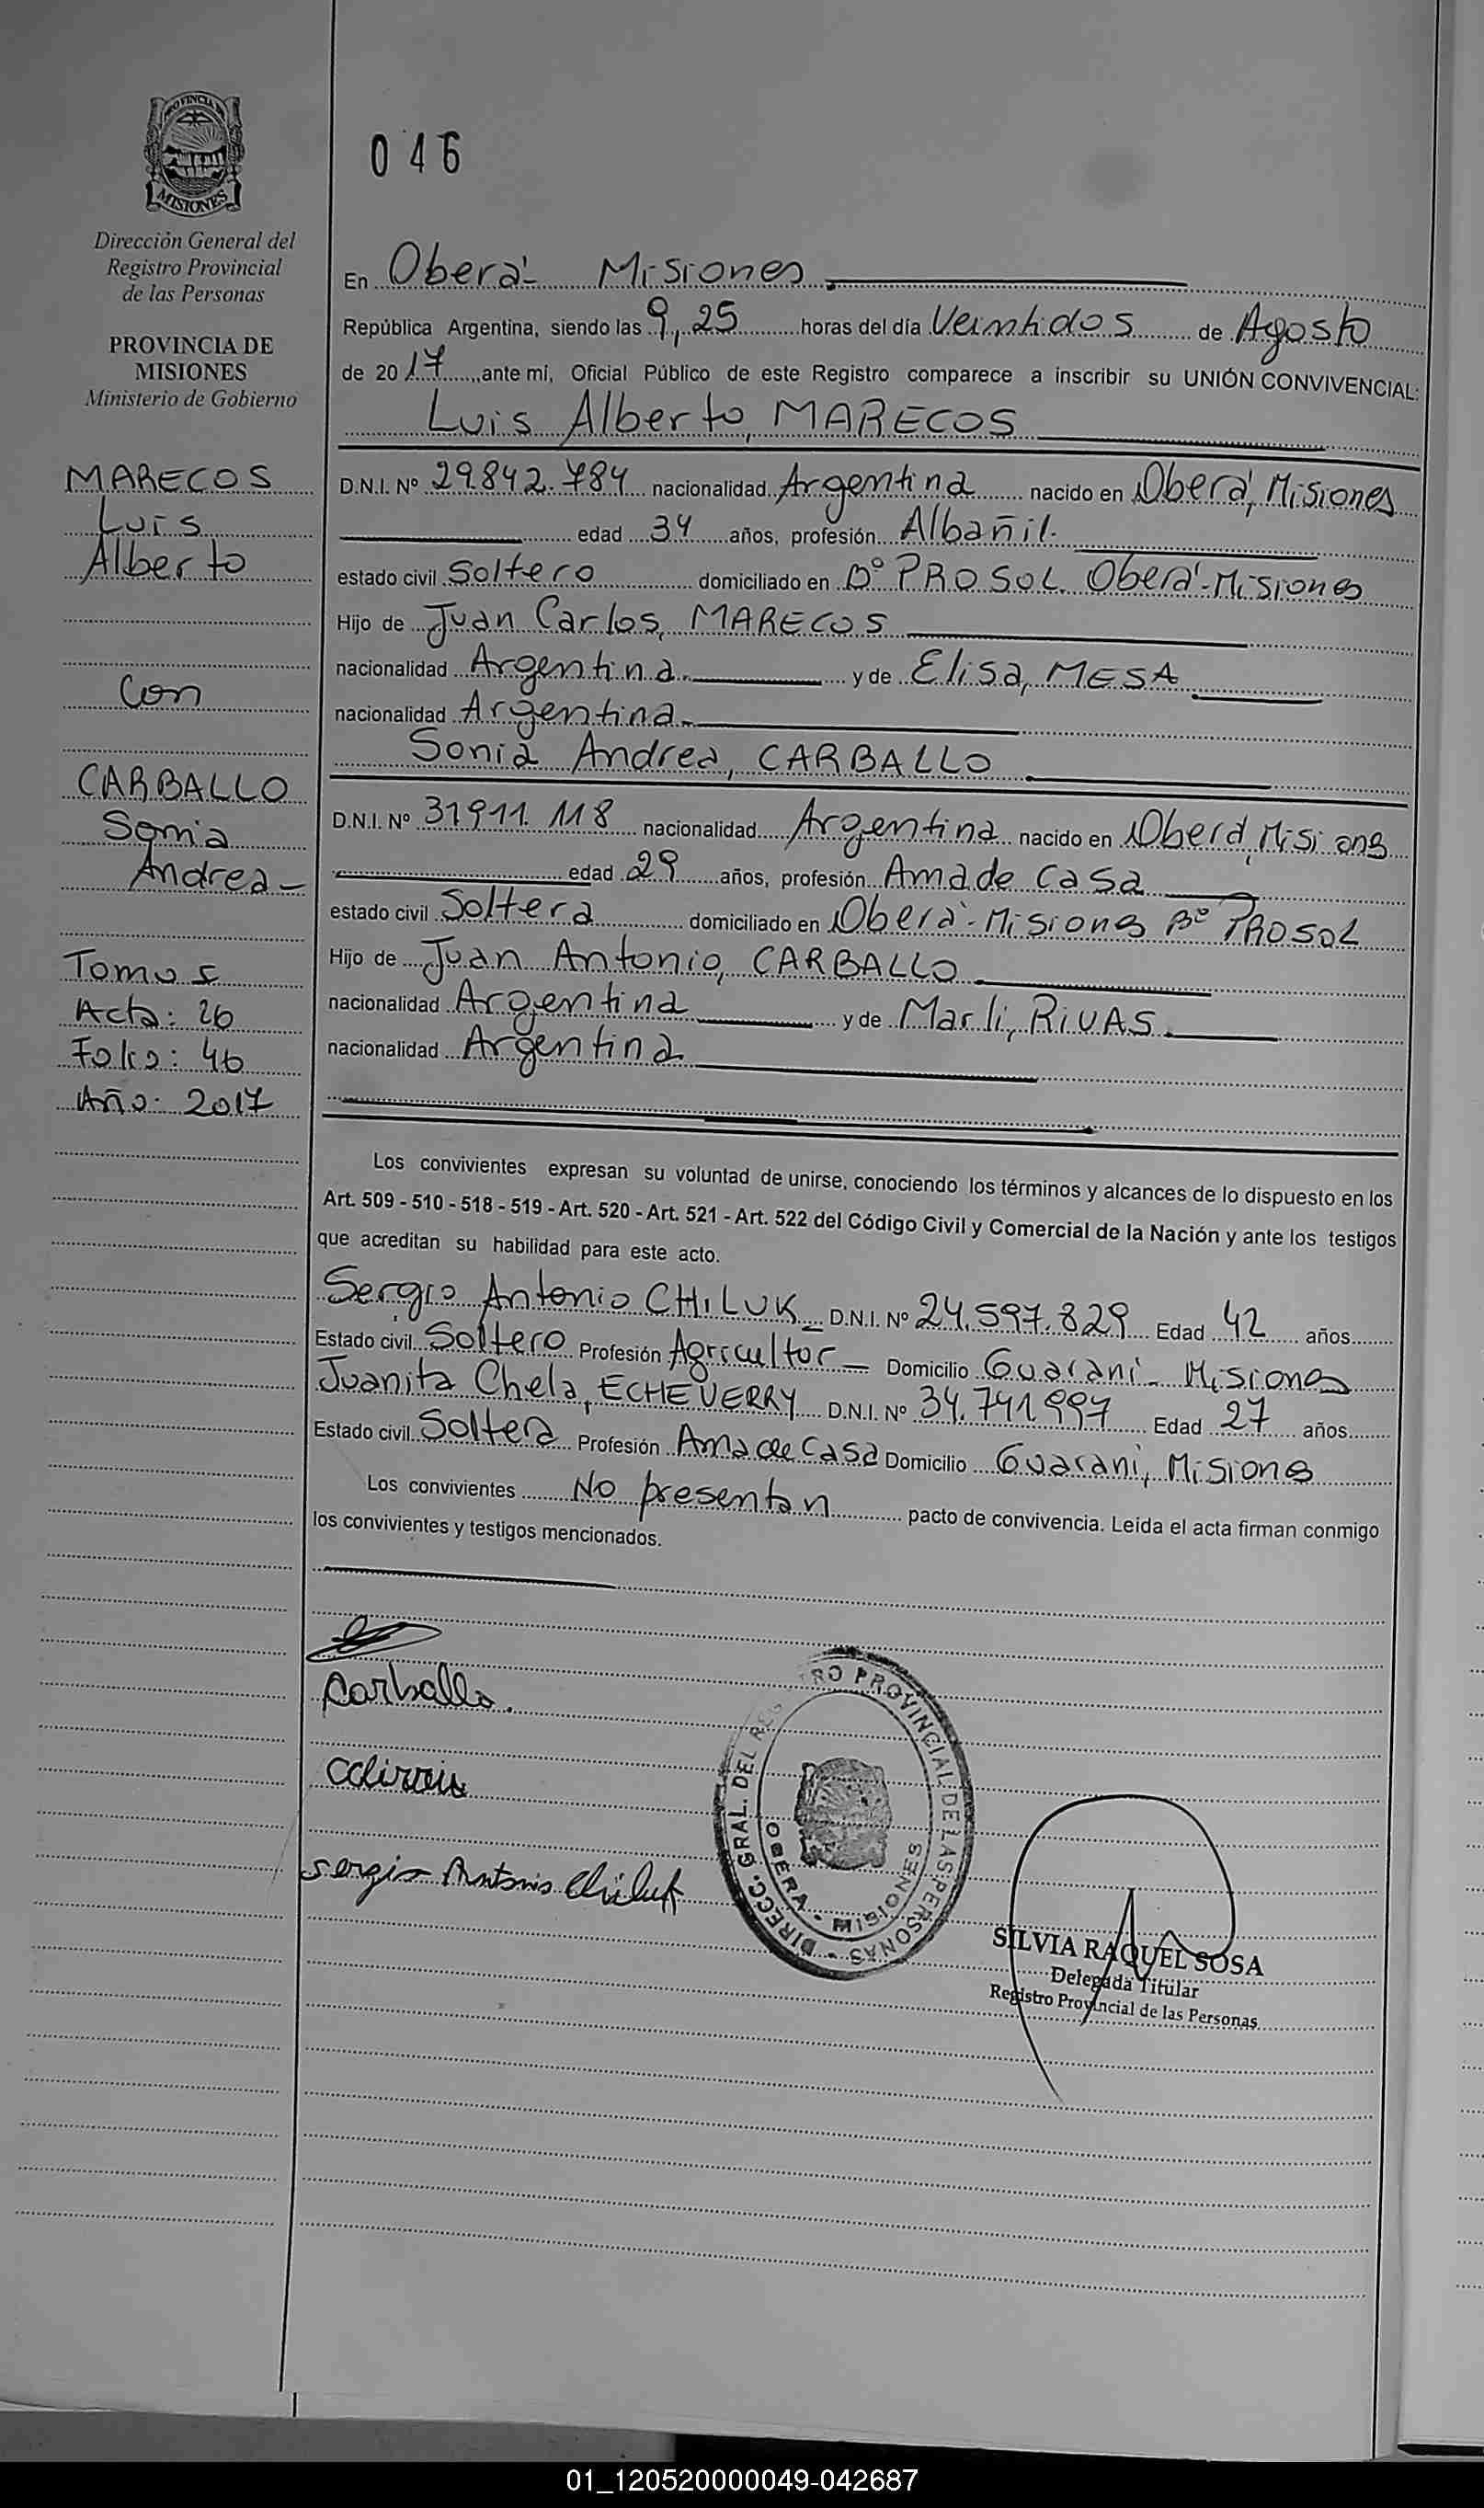 PROVINCIA DE
MISIONES
Dirección General del
Registro Provincial
de las Personas
PROVINCIA DE
MISIONES
Ministerio de Gobierno
MARECOS
Luis
Alberto
Con
CARBALLO
Sonia
Andrea-
Tomo 5
Acta: 26
Folio: 46
Año: 2017
046
En Oberá- Misiones
República Argentina, siendo las 9,25 horas del día Veintidos de Agosto
de 2017, ante mí, Oficial Público de este Registro comparece a inscribir su UNIÓN CONVIVENCIAL:
Luis Alberto, MARECOS
D.N.I. Nº 29.842.784 nacionalidad Argentina nacido en Oberá, Misiones
edad 34 años, profesión Albañil.
estado civil Soltero domiciliado en Bº PROSOL. Oberá-Misiones
Hijo de Juan Carlos, MARECOS
nacionalidad Argentina y de Elisa, MESA
nacionalidad Argentina
Sonia Andrea, CARBALLO
D.N.I. Nº 31911.118 nacionalidad Argentina nacido en Oberá, Misiones
edad 29 años, profesión Ama de Casa
estado civil Soltera domiciliado en Oberá-Misiones Bº PROSOL
Hijo de Juan Antonio, CARBALLO
nacionalidad Argentina y de Marli, RIVAS.
nacionalidad Argentina
Los convivientes expresan su voluntad de unirse, conociendo los términos y alcances de lo dispuesto en los
Art. 509 - 510 - 518 - 519 - Art. 520 - Art. 521 - Art. 522 del Código Civil y Comercial de la Nación y ante los testigos
que acreditan su habilidad para este acto.
Sergio Antonio CHILUK D.N.I. Nº 24.597.829 Edad 42 años
Estado civil Soltero Profesión Agricultor Domicilio Guaraní- Misiones
Juanita Chela, ECHEVERRY D.N.I. Nº 34.741.997 Edad 27 años
Estado civil Soltera Profesión Ama de Casa Domicilio Guaraní, Misiones
Los convivientes No presentan pacto de convivencia. Leída el acta firman conmigo
los convivientes y testigos mencionados.
Carballo.
Sergio Antonio Chiluk
DIRECC. GRAL. DEL REGISTRO PROVINCIAL DE LAS PERSONAS
OBERA - MISIONES
SILVIA RAQUEL SOSA
Delegada Titular
Registro Provincial de las Personas
01_120520000049-042687